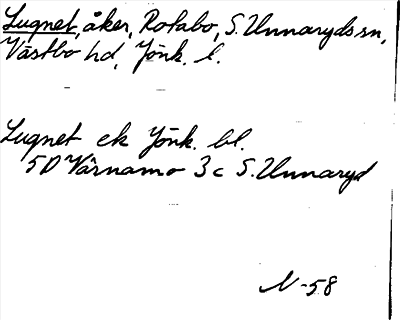 Lugnet, åker, Rotabo, S. Unnaryds sn,
Västbo hd, Jönk. l.
Lugnet ek Jönk. bl.
5D Värnamo 3c S. Unnaryd
N-58